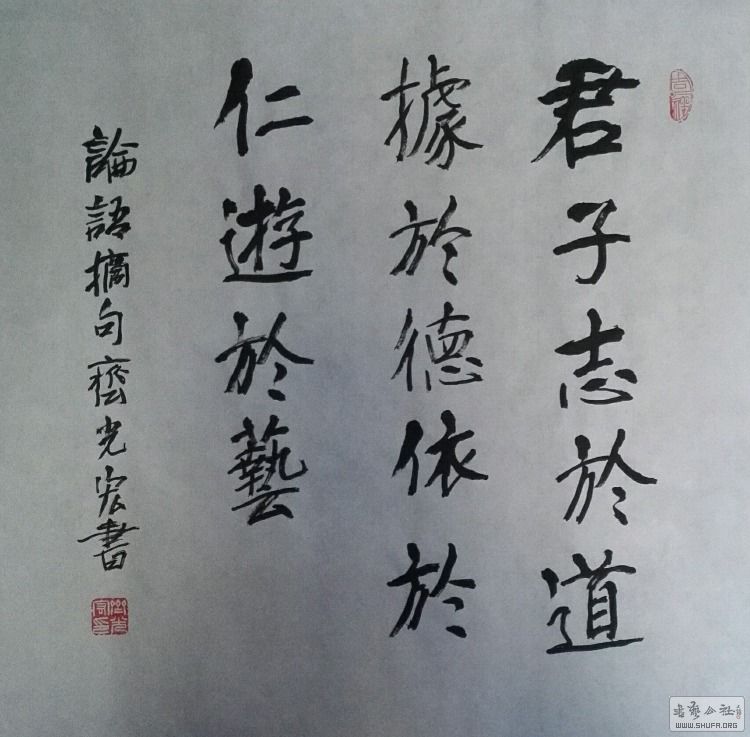 君子志於道
據於德依於
仁遊於藝
論語摘句齊光宏書
书艺公社
WWW.SHUFA.ORG